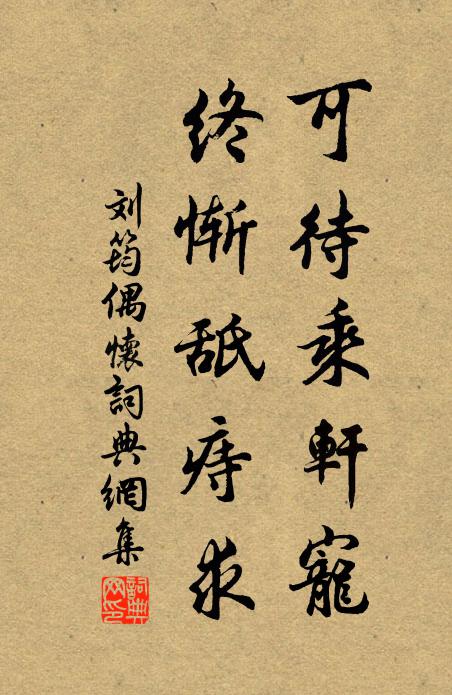 可待乘軒寵
終慚舐痔求
刘筠偶懷詞典網集
詞典网印